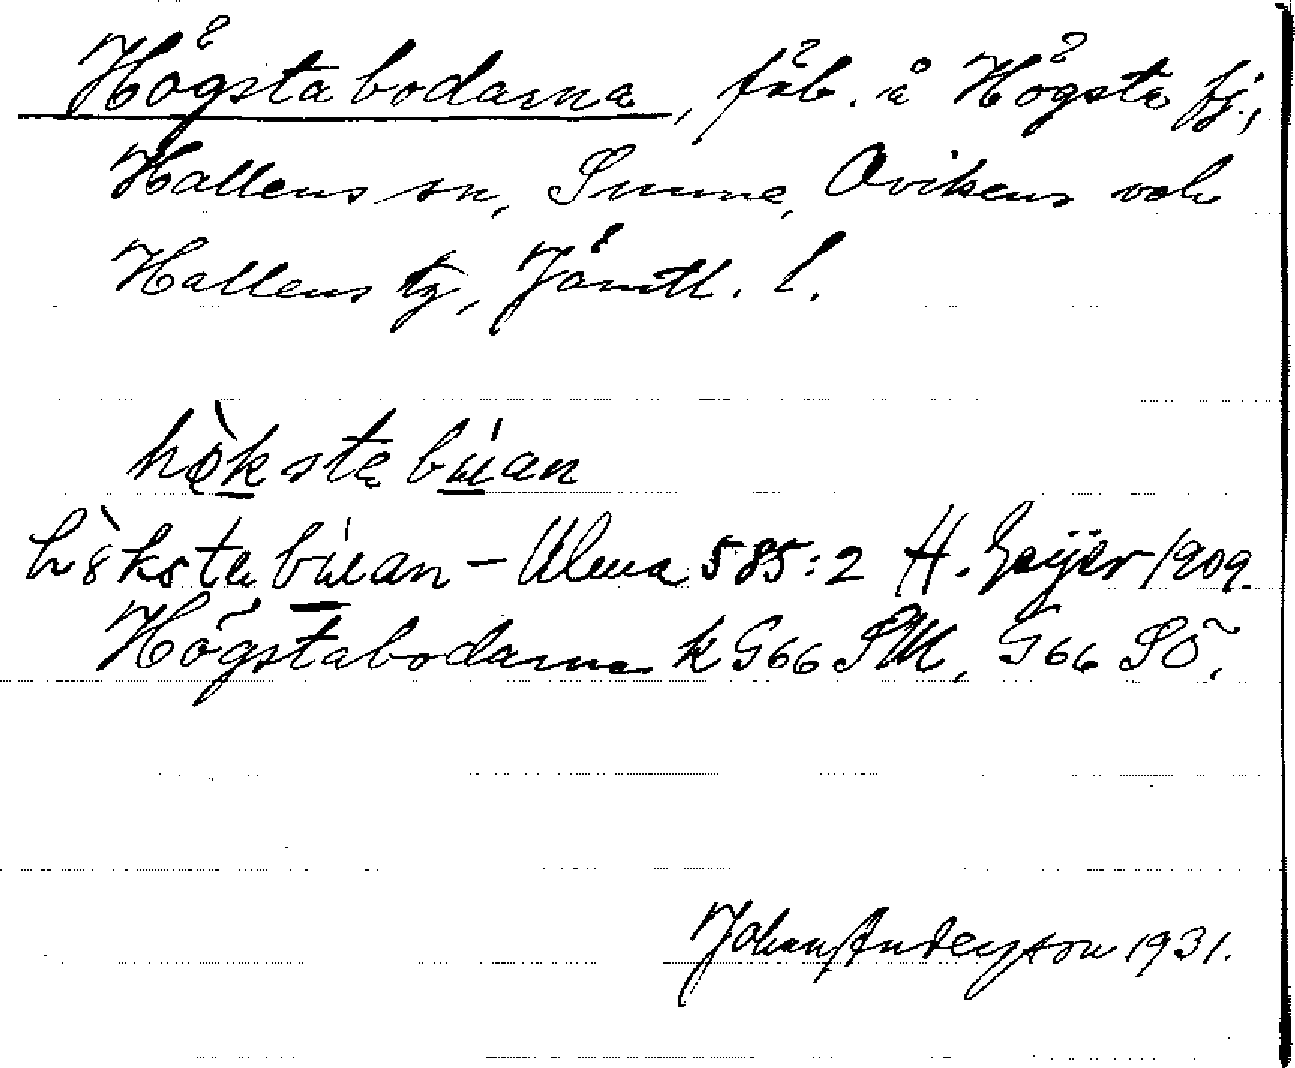 Högstabodarna, fäb. å Högsta fj.,
Hallens sn, Sunne, Ovikens och
Hallens tg, Jämtl. l.
hökstabúan
hökstabúan – Ulma 585:2 H. Geijer 1909.
Högstabodarna k G66 SM, G66 SÖ,
Johan Anderson 1931.